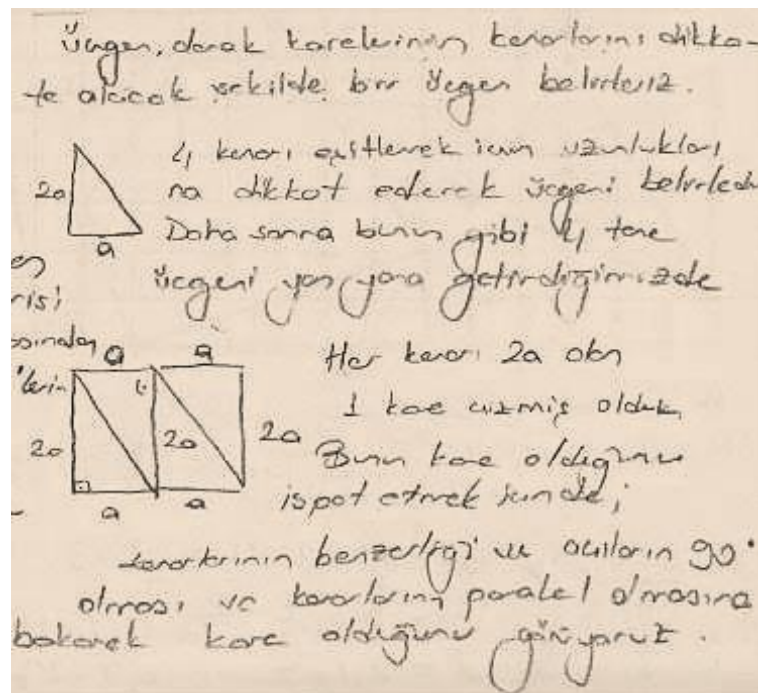 üçgen, olarak karelerinin kenarlarını dikka-
te alacak şekilde bir üçgen belirleriz.
2a
a
4 kenarı eşitlemek için uzunlukları
na dikkat ederek üçgeni belirledi
Daha sonra bunun gibi 4 tane
üçgeni yan yana getirdiğimizde
en
risi
sından
lerin
a a
2a 2a 2a
a a
Her kenarı 2a olan
1 kare çizmiş olduk,
Bunun kare olduğunu
ispat etmek için de;
kenarlarının benzerliği ve açıların 90°
olması ve kenarların paralel olmasına
bakarak kare olduğunu görüyoruz.